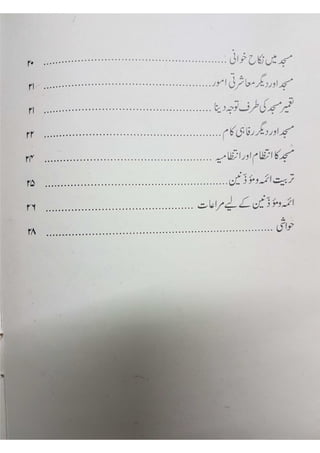 مسجد میں نکاح خوانی ........ ۲۰
مسجد اور دیگر معاشرتی امور ........ ۲۱
تعمیر مسجد کی طرف توجہ دینا ........ ۲۱
مسجد اور دیگر رفاہی کام ........ ۲۲
مسجد کا انتظام اور انتظامیہ ........ ۲۴
تربیت ائمہ و مؤذنین ........ ۲۵
ائمہ و مؤذنین کے لیے مراعات ........ ۲۶
حواشی ........ ۲۸